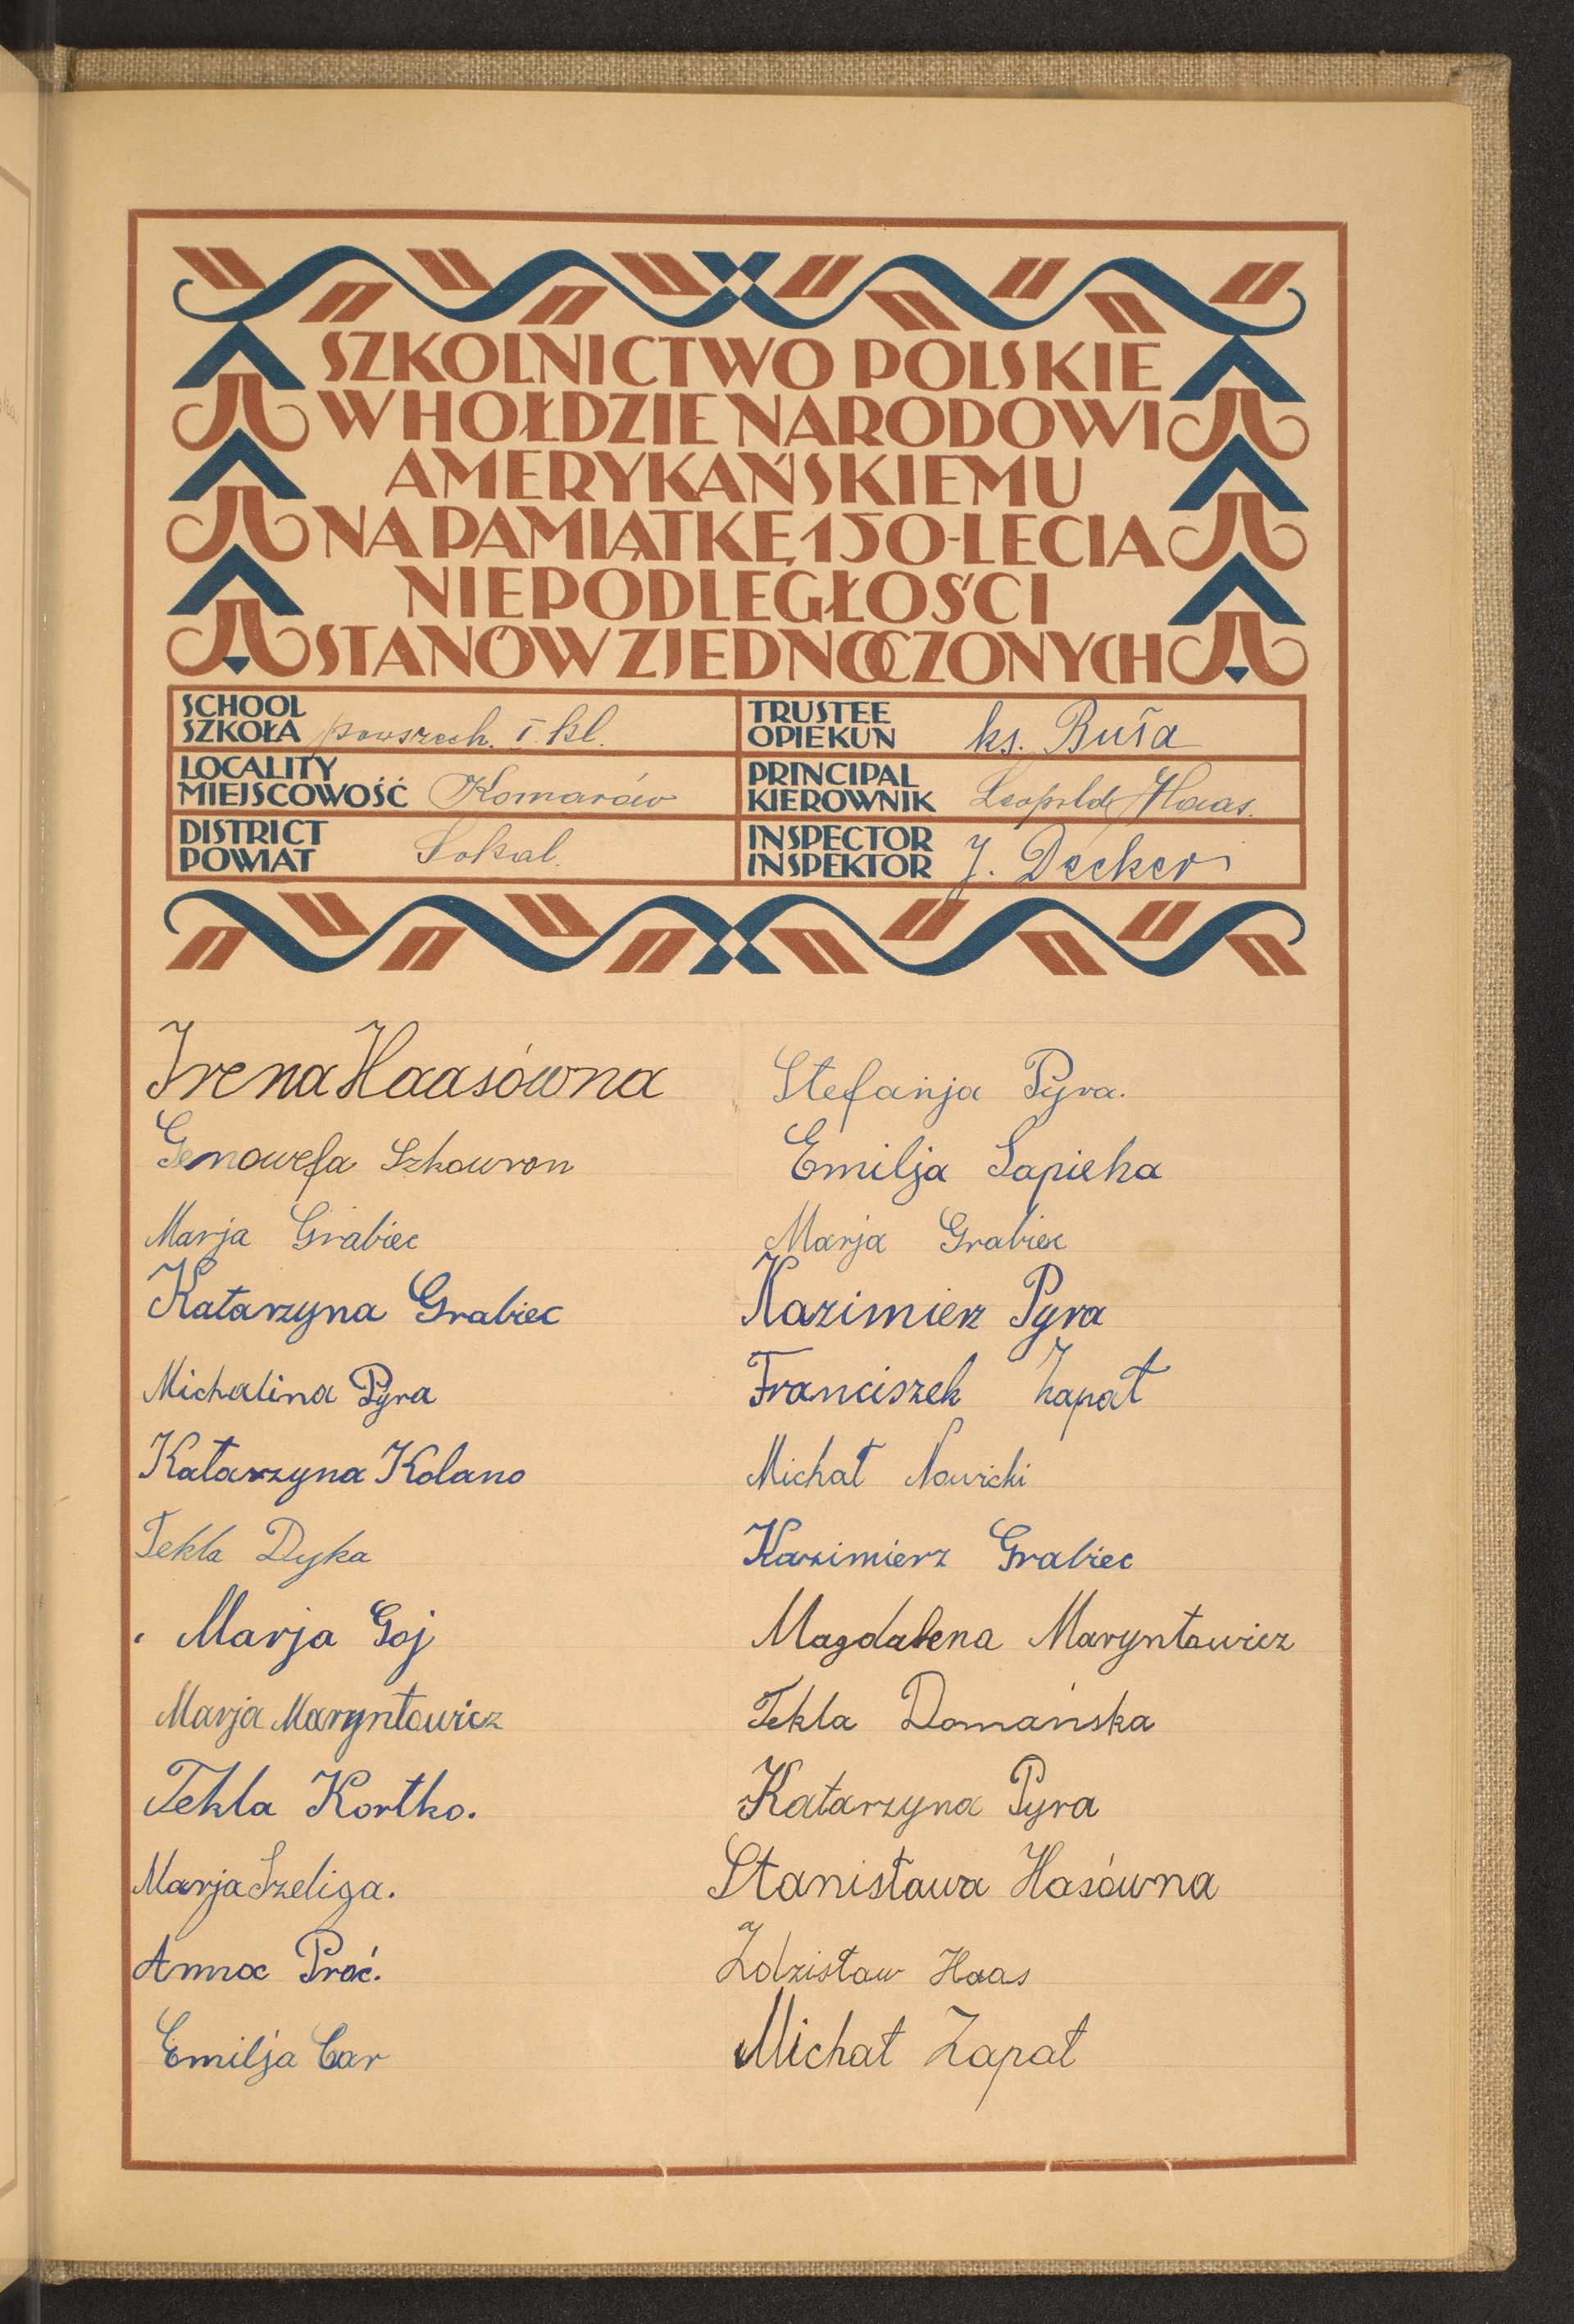 SZKOLNICTWO POLSKIE
W HOŁDZIE NARODOWI
AMERYKAŃSKIEMU
NA PAMIĄTKĘ 150-LECIA
NIEPODLEGŁOŚCI
STANÓW ZJEDNOCZONYCH
SCHOOL
SZKOŁA powszech. I kl.
TRUSTEE
OPIEKUN ks. Buła
LOCALITY
MIEJSCOWOŚĆ Komarów
PRINCIPAL
KIEROWNIK Leopold Haas.
DISTRICT
POWIAT Sokal.
INSPECTOR
INSPEKTOR J. Decker
Irena Haasówna
Genowefa Szkowron
Marja Grabiec
Katarzyna Grabiec
Michalina Pyra
Katarzyna Kolano
Tekla Dyka
Marja Goj
Marja Maryntowicz
Tekla Kortko.
Marja Szeliga.
Anna Proć.
Emilja Car
Stefanja Pyra.
Emilja Sapieha
Marja Grabiec
Kazimierz Pyra
Franciszek Zapał
Michał Nowicki
Kazimierz Grabiec
Magdalena Maryntowicz
Tekla Domańska
Katarzyna Pyra
Stanisława Hasówna
Zdzisław Haas
Michał Zapał